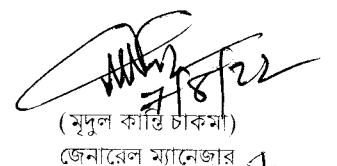 ৭/৪/২২
(মৃদুল কান্তি চাকমা)
জেনারেল ম্যানেজার